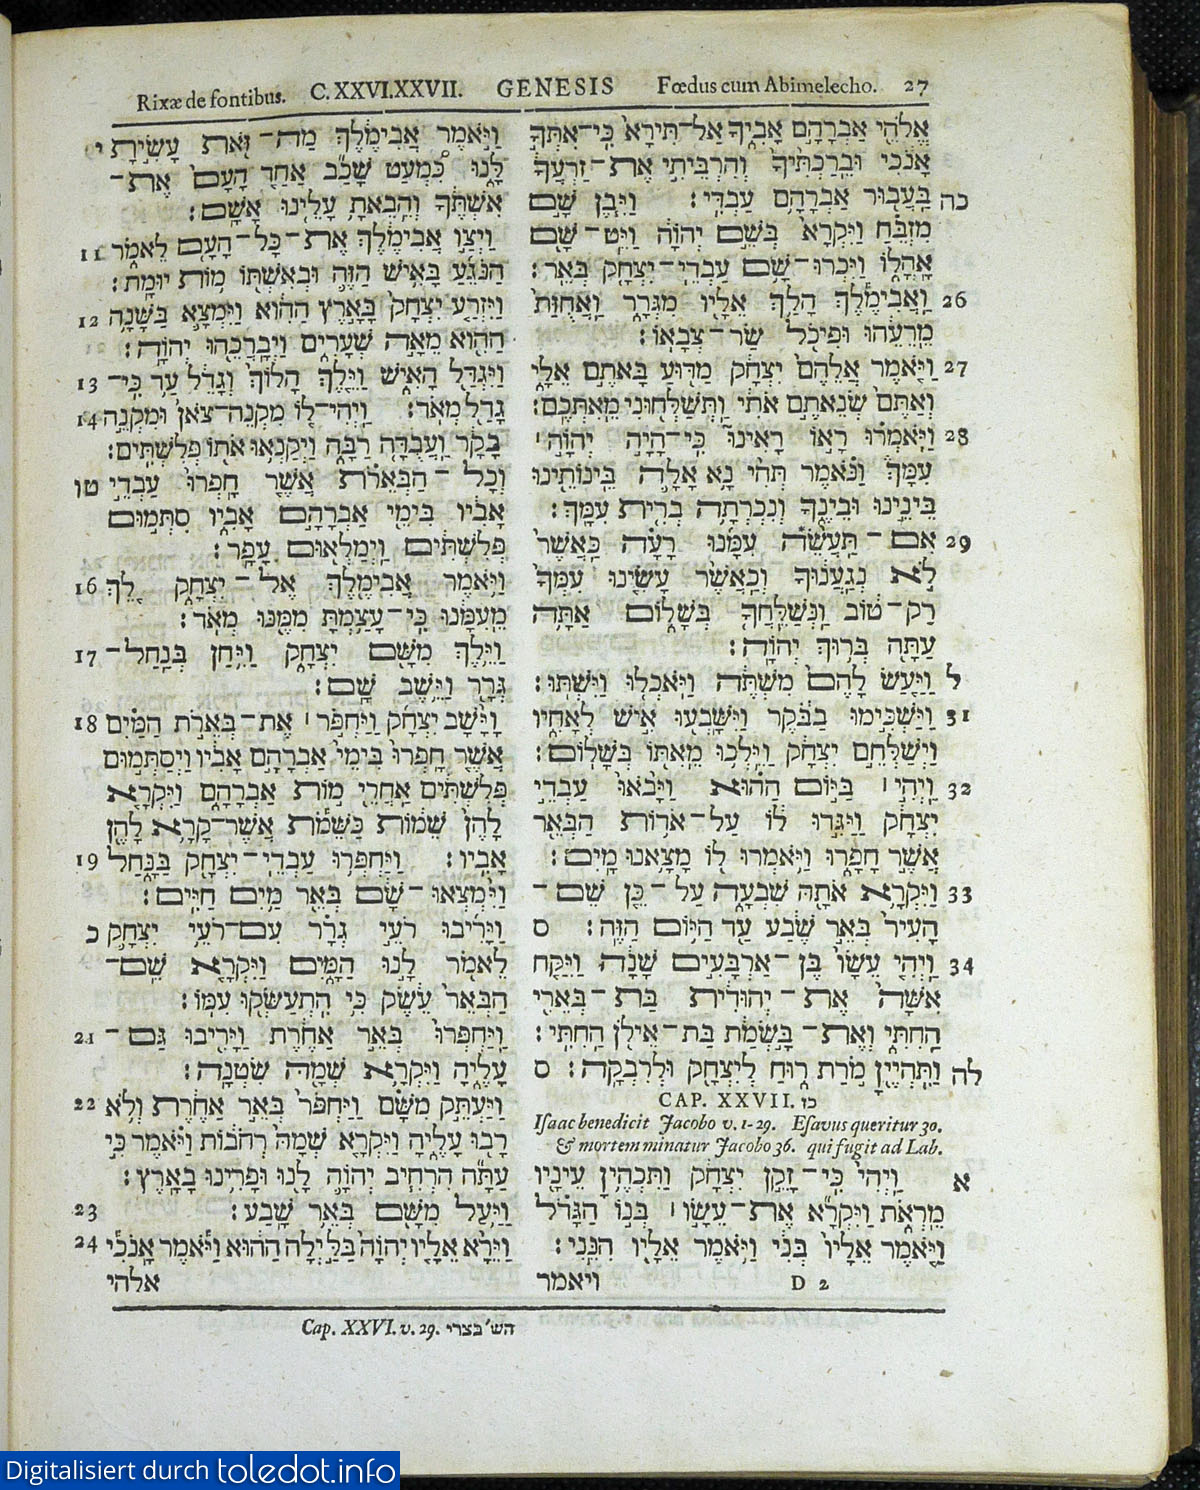 Rixæ de fontibus. C. XXVI.XXVII. GENESIS Fœdus cum Abimelecho. 27
י וַיֹּאמֶר אֲבִימֶלֶךְ מַה־זֹּאת עָשִׂיתָ
לָּנוּ כִּמְעַט שָׁכַב אַחַד הָעָם אֶת־
אִשְׁתֶּךָ וְהֵבֵאתָ עָלֵינוּ אָשָׁם׃
11 וַיְצַו אֲבִימֶלֶךְ אֶת־כָּל־הָעָם לֵאמֹר
הַנֹּגֵעַ בָּאִישׁ הַזֶּה וּבְאִשְׁתּוֹ מוֹת יוּמָת׃
12 וַיִּזְרַע יִצְחָק בָּאָרֶץ הַהִוא וַיִּמְצָא בַּשָּׁנָה
הַהִוא מֵאָה שְׁעָרִים וַיְבָרֲכֵהוּ יְהוָה׃
13 וַיִּגְדַּל הָאִישׁ וַיֵּלֶךְ הָלוֹךְ וְגָדֵל עַד כִּי־
14 גָדַל מְאֹד׃ וַיְהִי־לוֹ מִקְנֵה־צֹאן וּמִקְנֵה
בָקָר וַעֲבֻדָּה רַבָּה וַיְקַנְאוּ אֹתוֹ פְּלִשְׁתִּים׃
טו וְכָל־הַבְּאֵרֹת אֲשֶׁר חָפְרוּ עַבְדֵי
אָבִיו בִּימֵי אַבְרָהָם אָבִיו סִתְּמוּם
פְּלִשְׁתִּים וַיְמַלְאוּם עָפָר׃
16 וַיֹּאמֶר אֲבִימֶלֶךְ אֶל־יִצְחָק לֵךְ
מֵעִמָּנוּ כִּי־עָצַמְתָּ מִמֶּנּוּ מְאֹד׃
17 וַיֵּלֶךְ מִשָּׁם יִצְחָק וַיִּחַן בְּנַחַל־
גְּרָר וַיֵּשֶׁב שָׁם׃
18 וַיָּשָׁב יִצְחָק וַיַּחְפֹּר׀ אֶת־בְּאֵרֹת הַמַּיִם
אֲשֶׁר חָפְרוּ בִּימֵי אַבְרָהָם אָבִיו וַיְסַתְּמוּם
פְּלִשְׁתִּים אַחֲרֵי מוֹת אַבְרָהָם וַיִּקְרָא
לָהֶן שֵׁמוֹת כַּשֵּׁמֹת אֲשֶׁר־קָרָא לָהֶן
19 אָבִיו׃ וַיַּחְפְּרוּ עַבְדֵי־יִצְחָק בַּנָּחַל
וַיִּמְצְאוּ־שָׁם בְּאֵר מַיִם חַיִּים׃
כ וַיָּרִיבוּ רֹעֵי גְרָר עִם־רֹעֵי יִצְחָק
לֵאמֹר לָנוּ הַמָּיִם וַיִּקְרָא שֵׁם־
הַבְּאֵר עֵשֶׂק כִּי הִתְעַשְּׂקוּ עִמּוֹ׃
21 וַיַּחְפְּרוּ בְּאֵר אַחֶרֶת וַיָּרִיבוּ גַּם־
עָלֶיהָ וַיִּקְרָא שְׁמָהּ שִׂטְנָה׃
22 וַיַּעְתֵּק מִשָּׁם וַיַּחְפֹּר בְּאֵר אַחֶרֶת וְלֹא
רָבוּ עָלֶיהָ וַיִּקְרָא שְׁמָהּ רְחֹבוֹת וַיֹּאמֶר כִּי
עַתָּה הִרְחִיב יְהוָה לָנוּ וּפָרִינוּ בָאָרֶץ׃
23 וַיַּעַל מִשָּׁם בְּאֵר שָׁבַע׃
24 וַיֵּרָא אֵלָיו יְהוָה בַּלַּיְלָה הַהוּא וַיֹּאמֶר אָנֹכִי
אלהי
אֱלֹהֵי אַבְרָהָם אָבִיךָ אַל־תִּירָא כִּי־אִתְּךָ
אָנֹכִי וּבֵרַכְתִּיךָ וְהִרְבֵּיתִי אֶת־זַרְעֲךָ
כה בַּעֲבוּר אַבְרָהָם עַבְדִּי׃ וַיִּבֶן שָׁם
מִזְבֵּחַ וַיִּקְרָא בְּשֵׁם יְהוָה וַיֶּט־שָׁם
אָהֳלוֹ וַיִּכְרוּ־שָׁם עַבְדֵי־יִצְחָק בְּאֵר׃
26 וַאֲבִימֶלֶךְ הָלַךְ אֵלָיו מִגְּרָר וַאֲחֻזַּת
מֵרֵעֵהוּ וּפִיכֹל שַׂר־צְבָאוֹ׃
27 וַיֹּאמֶר אֲלֵהֶם יִצְחָק מַדּוּעַ בָּאתֶם אֵלָי
וְאַתֶּם שְׂנֵאתֶם אֹתִי וַתְּשַׁלְּחוּנִי מֵאִתְּכֶם׃
28 וַיֹּאמְרוּ רָאוֹ רָאִינוּ כִּי־הָיָה יְהוָה׀
עִמָּךְ וַנֹּאמֶר תְּהִי נָא אָלָה בֵּינוֹתֵינוּ
בֵּינֵינוּ וּבֵינֶךָ וְנִכְרְתָה בְרִית עִמָּךְ׃
29 אִם־תַּעֲשֵׂה עִמָּנוּ רָעָה כַּאֲשֶׁר
לֹא נְגַעֲנוּךָ וְכַאֲשֶׁר עָשִׂינוּ עִמְּךָ
רַק־טוֹב וַנְּשַׁלֵּחֲךָ בְּשָׁלוֹם אַתָּה
עַתָּה בְּרוּךְ יְהוָה׃
ל וַיַּעַשׂ לָהֶם מִשְׁתֶּה וַיֹּאכְלוּ וַיִּשְׁתּוּ׃
31 וַיַּשְׁכִּימוּ בַבֹּקֶר וַיִּשָּׁבְעוּ אִישׁ לְאָחִיו
וַיְשַׁלְּחֵם יִצְחָק וַיֵּלְכוּ מֵאִתּוֹ בְּשָׁלוֹם׃
32 וַיְהִי׀ בַּיּוֹם הַהוּא וַיָּבֹאוּ עַבְדֵי
יִצְחָק וַיַּגִּדוּ לוֹ עַל־אֹדוֹת הַבְּאֵר
אֲשֶׁר חָפָרוּ וַיֹּאמְרוּ לוֹ מָצָאנוּ מָיִם׃
33 וַיִּקְרָא אֹתָהּ שִׁבְעָה עַל־כֵּן שֵׁם־
הָעִיר בְּאֵר שֶׁבַע עַד הַיּוֹם הַזֶּה׃ ס
34 וַיְהִי עֵשָׂו בֶּן־אַרְבָּעִים שָׁנָה וַיִּקַּח
אִשָּׁה אֶת־יְהוּדִית בַּת־בְּאֵרִי
הַחִתִּי וְאֶת־בָּשְׂמַת בַּת־אֵילֹן הַחִתִּי׃
לה וַתִּהְיֶיןָ מֹרַת רוּחַ לְיִצְחָק וּלְרִבְקָה׃ ס
CAP. XXVII. כז
Isaac benedicit Jacobo v. 1-29. Esavus queritur 30.
& mortem minatur Jacobo 36. qui fugit ad Lab.
א וַיְהִי כִּי־זָקֵן יִצְחָק וַתִּכְהֶיןָ עֵינָיו
מֵרְאֹת וַיִּקְרָא אֶת־עֵשָׂו׀ בְּנוֹ הַגָּדֹל
וַיֹּאמֶר אֵלָיו בְּנִי וַיֹּאמֶר אֵלָיו הִנֵּנִי׃
D 2 ויאמר
Cap. XXVI. v. 29. הש׳ בצרי
Digitalisiert durch toledot.info